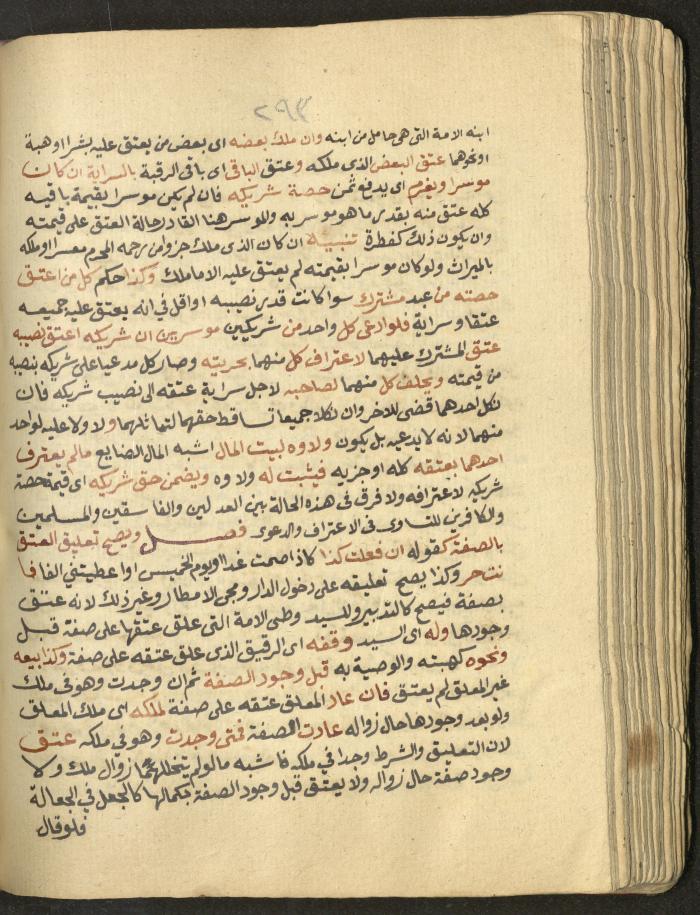 ٢٩٣
ابنه الامة التى هى حامل من ابنه وان ملك بعضه اى بعض من يعتق عليه بشرا او هبة
او نحوهما عتق البعض الذى ملكه وعتق الباقى اى باقى الرقبة بالسراية ان كان
موسرا ويغرم اى يدفع ثمن حصة شريكه فان لم يكن موسرا بقيمة باقيه
كله عتق منه بقدر ما هو موسر به والموسر هنا القادر حالة العتق على قيمته
وان يكون ذلك كفطرة تنبيه ان كان الذى ملك جزوا من رحمه المحرم معسرا او ملكه
بالميراث ولو كان موسرا بقيمته لم يعتق عليه الا ما ملك وكذا حكم كل من اعتق
حصته من عبد مشترك سوا كانت قدر نصيبه او اقل فى انه يعتق عليه جميعه
عتقا وسراية فلو ادعى كل واحد من شريكين موسرين ان شريكه اعتق نصيبه
عتق المشترك عليهما لاعتراف كل منهما بحريته وصار كل مدعيا على شريكه بنصيبه
من قيمته ويحلف كل منهما لصاحبه لاجل سراية عتقه الى نصيب شريكه فان
نكل احدهما قضى للاخر وان نكلا جميعا تساقط حقهما لتماثلهما ولا ولا عليه لواحد
منهما لانه لا يدعيه بل يكون ولاوه لبيت المال اشبه المال الضايع مالم يعترف
احدهما بعتقه كله او جزيه فيثبت له ولاوه ويضمن حق شريكه اى قيمة حصة
شريكه لاعترافه ولا فرق فى هذه الحالة بين العدلين والفاسقين والمسلمين
والكافرين للتساوى فى الاعتراف والدعوى فصل ويصح تعليق العتق
بالصفة كقوله ان فعلت كذا كاذا صمت غدا او يوم الخميس او اعطيتنى الفا فا
نت حر وكذا يصح تعليقه على دخول الدار ومجى الامطار وغير ذلك لانه عتق
بصفة فيصح كالتدبير وللسيد وطى الامة التى علق عتقها على صفة قبل
وجودها وله اى السيد وقفه اى الرقيق الذى علق عتقه على صفة وكذا بيعه
ونحوه كهبته والوصية به قبل وجود الصفة ثم ان وجدت وهو فى ملك
غير المعلق لم يعتق فان عاد المعلق عتقه على صفة لملكه اى ملك المعلق
ولو بعد وجودها حال زواله عادت الصفة فمتى وجدت وهو فى ملكه عتق
لان التعليق والشرط وجدا فى ملكه فاشبه مالو لم يتخللهما زوال ملك ولا
وجود صفة حال زواله ولا يعتق قبل وجود الصفة بكمالها كالجعل فى الجعالة
فلو قال